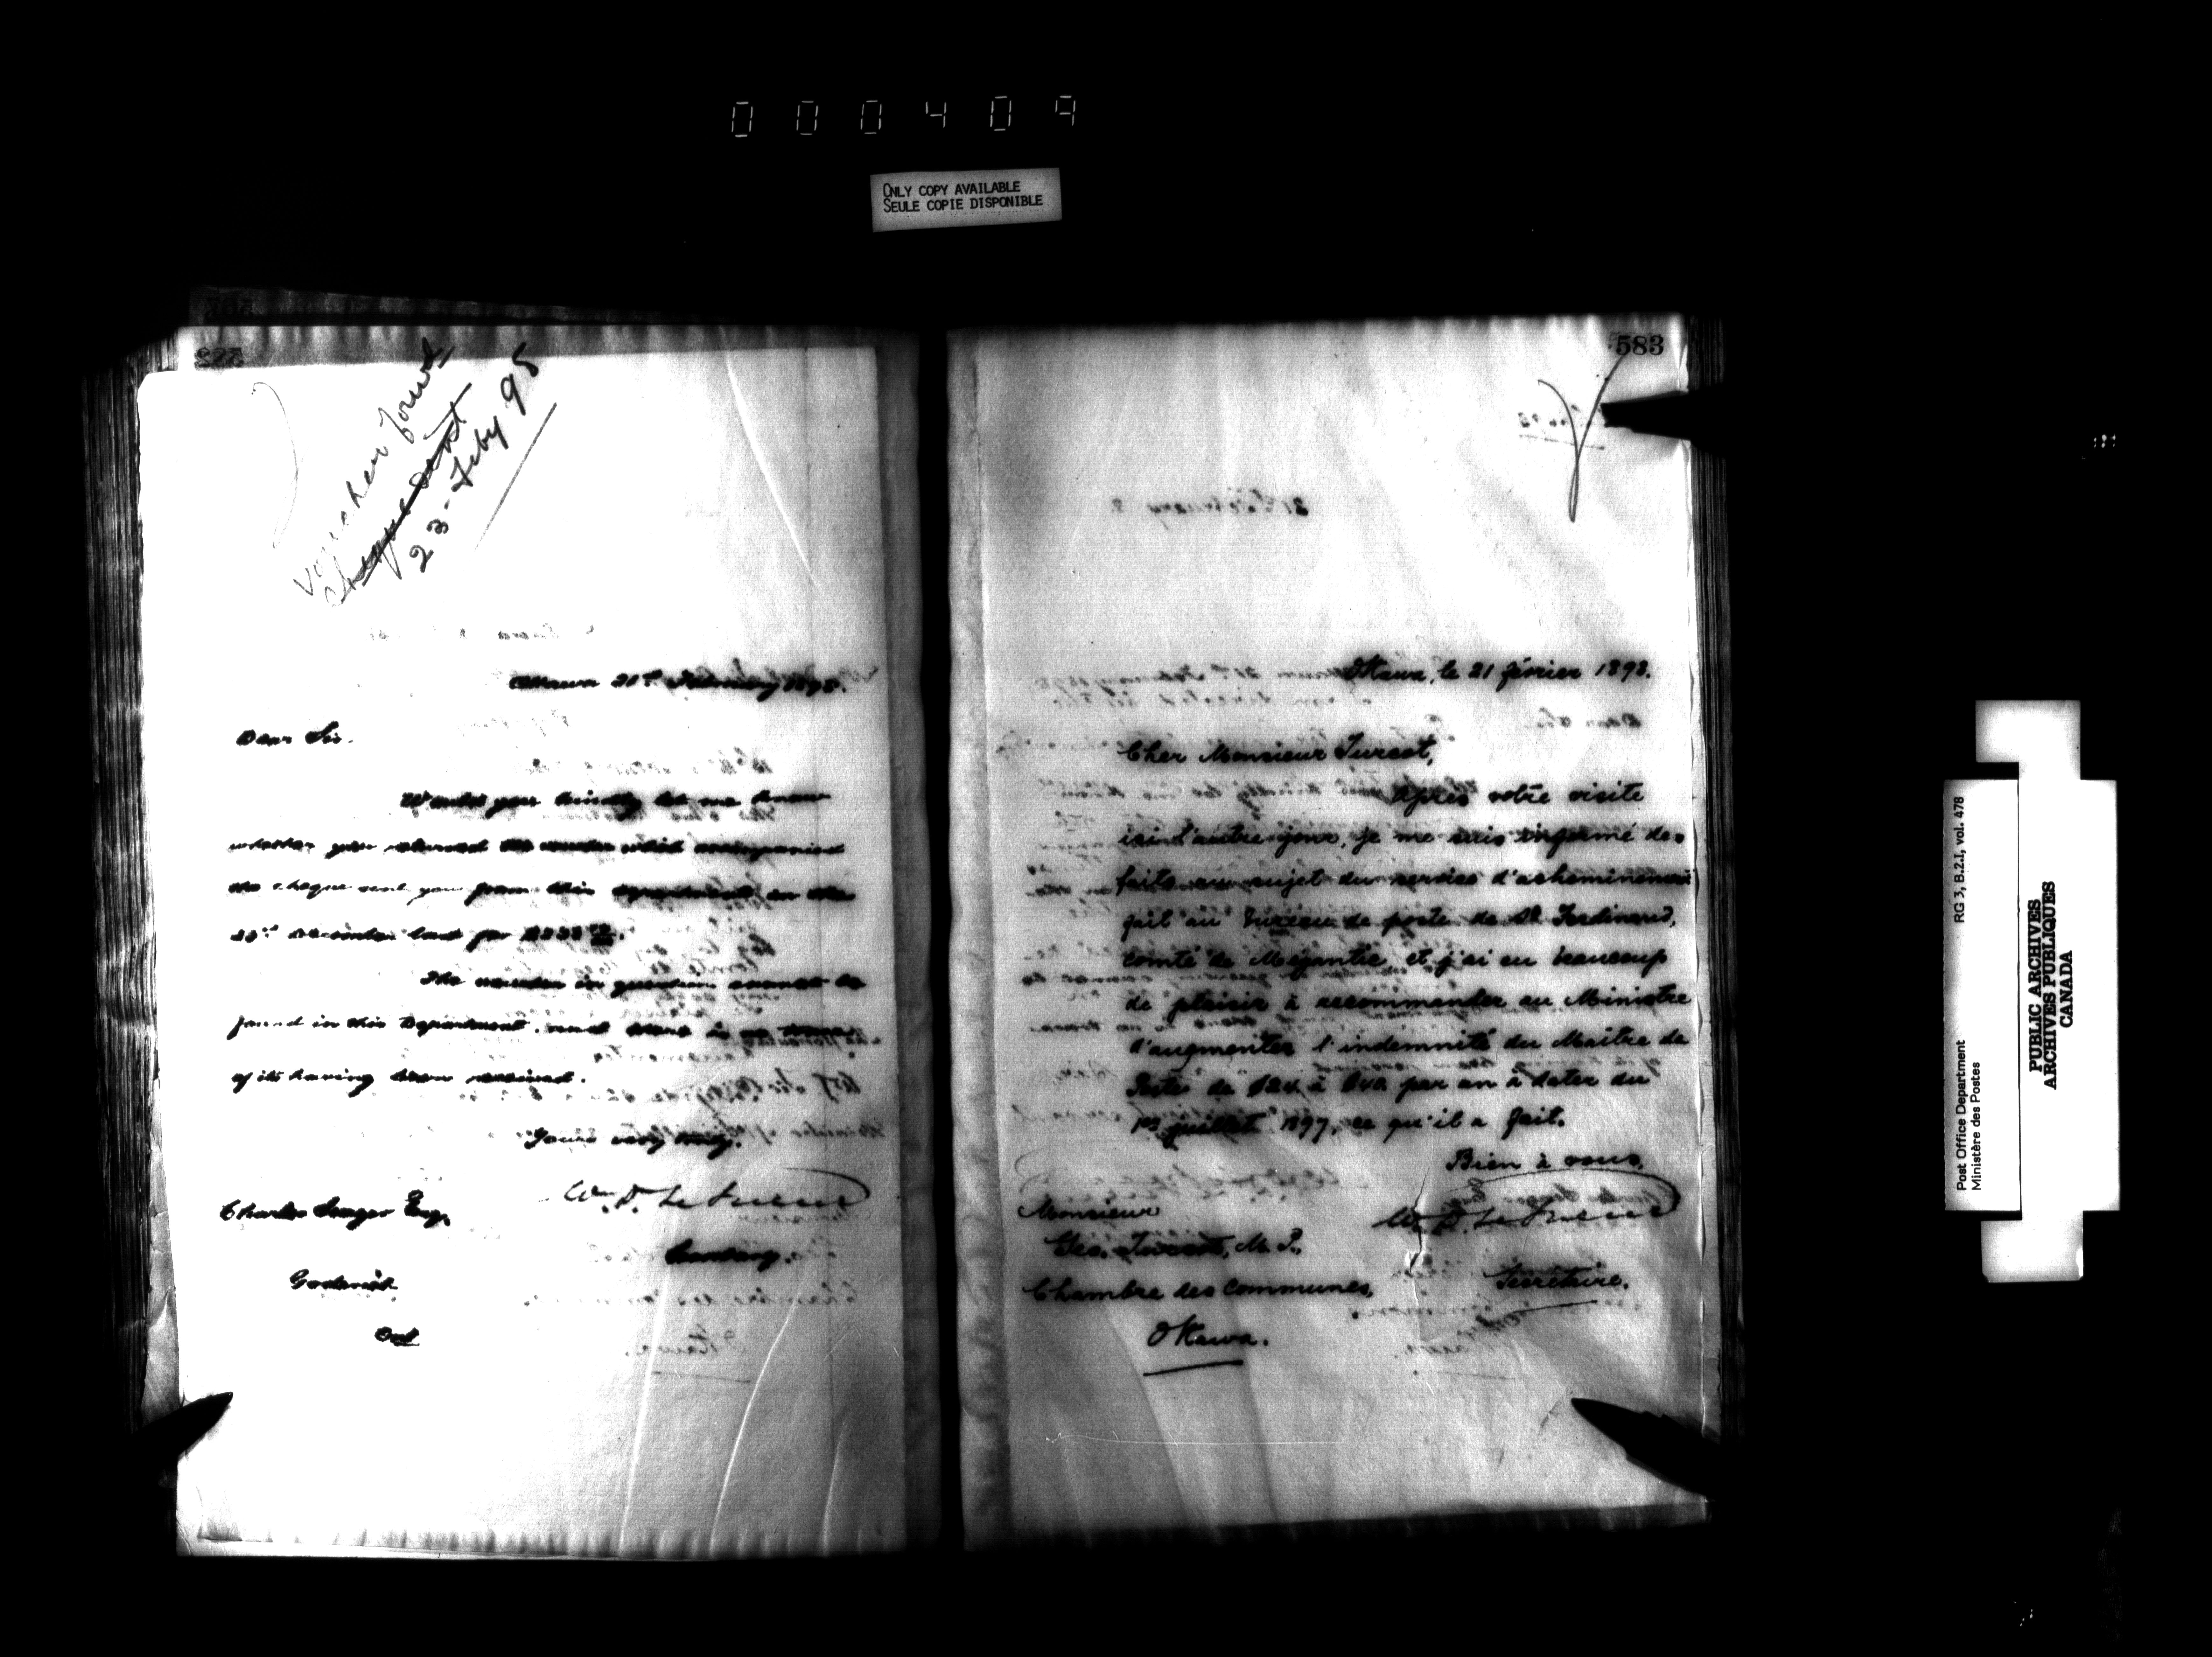 000409
ONLY COPY AVAILABLE
SEULE COPIE DISPONIBLE
Voucher found
Cheque sent
23-Feby 98
Ottawa 21st February 1898.
Dear Sir.
Would you kindly let me know
whether you returned the voucher which accompanied
the cheque sent you from this Department on the
December last for
The voucher in question cannot be
found in this Department and there is no trace
of its having been received.
Yours very truly,
Wm. D. LeSueur
Secretary.
Charles Seager Esq.
Goderich
Ont
583
Ottawa, le 21 février 1898.
Cher Monsieur Turcot,
Après votre visite
ici l'autre jour, je me suis informé des
faits au sujet du service d'acheminement
fait au bureau de poste de St Ferdinand,
comté de Mégantic, et j'ai eu beaucoup
de plaisir à recommander au Ministre
d'augmenter l'indemnité du Maître de
Poste de $24 à $40 par an à dater du
1er juillet 1897, ce qu'il a fait.
Bien à vous,
Wm. D. LeSueur
Secrétaire.
Monsieur
Geo. Turcot, M.P.,
Chambre des Communes,
Ottawa.
Post Office Department
Ministère des Postes
RG 3, B.2.I, vol. 478
PUBLIC ARCHIVES
ARCHIVES PUBLIQUES
CANADA